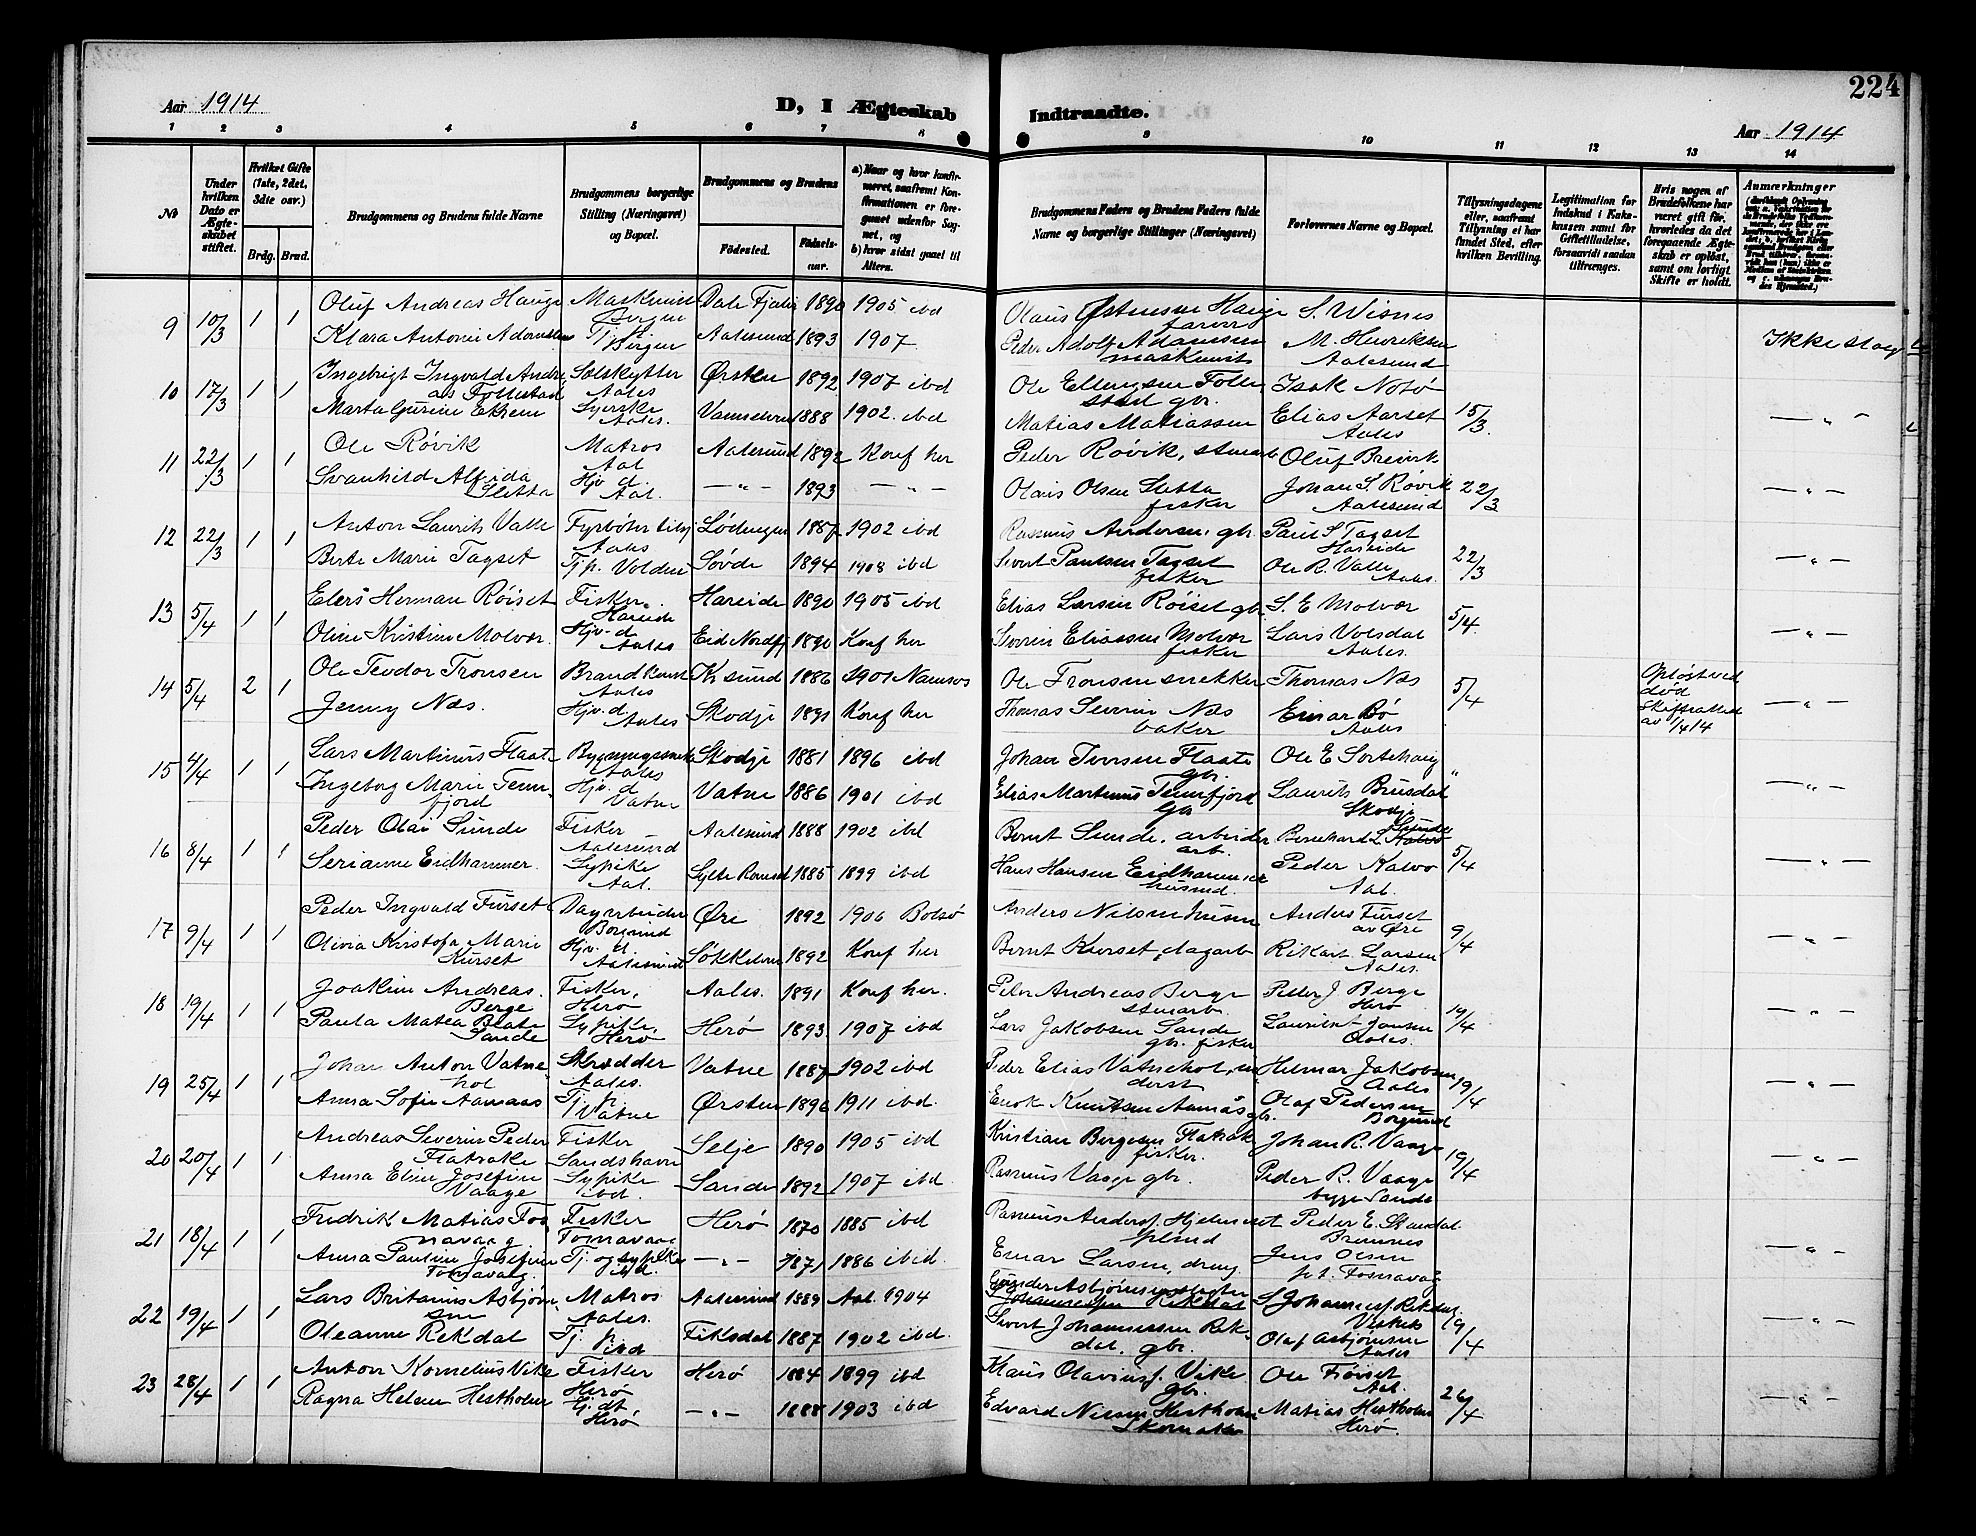 224
Aar 1914
D, I Ægteskab
Indtraadte.
Aar 1914
1 2 3 4 5 6 7 8 9 10 11 12 13 14
№
Under hvilken Dato er Ægteskabet stiftet.
Hvilket Gifte (1ste, 2det, 3die osv.)
Brdg. Brud.
Brudgommens og Brudens fulde Navne
Brudgommens borgerlige Stilling (Næringsvei) og Bopæl.
Brudgommens og Brudens
Födested.
Födselsaar.
a) Naar og hvor konfirmeret, saafremt Konfirmationen er foregaaet udenfor Sognet, og
b) hvor sidst gaaet til Alters.
Brudgommens Faders og Brudens Faders fulde Navne og borgerlige Stillinger (Næringsvei)
Forlovernes Navne og Bopæl.
Tillysningsdagene eller, saafremt Tillysning ei har fundet Sted, efter hvilken Bevilling.
Legitimation for Indskud i Enkekassen samt for Giftetilladelse, forsaavidt saadan tiltrænges.
Hvis nogen af Brudefolkene har været gift før, hvorledes da det foregaaende Ægteskab er opløst, samt om lovligt Skifte er holdt.
Anmærkninger
9 10/3 1 1 Oluf Andreas Hauge Maskinist Bergen Dale Fjaler 1890 1905 ibd Olaus Østensen Hauge farver S. Wisnes
Klara Antonie Adamsen Tj. p. Bergen Aalesund 1893 1907 Peder Adolf Adamsen maskinist M. Henriksen Aalesund Ikke slag
10 17/3 1 1 Ingebrigt Ingvald Andreas Follestad Sælskytter Aales Ørsten 1892 1907 ibd Ole Ellingsen Follestad gbr. Isak Notø
Marta Gurine Eksem Syerske Aales. 1888 1902 ibd Matias Matiassen Elias Aarset Aales 15/3 — " —
11 22/3 1 1 Ole Røvik Matros Aal Aalesund 1892 Konf her Peder Røvik, stuearb Oluf Breivik
Svanhild Alfida Sletta Hjv. d. Aal. — " — 1893 — " — Olaus Olsen Sletta fisker Johan S. Røvik Aalesund 22/3 — " —
12 22/3 1 1 Anton Laurits Valle Fyrbøter Aales Lødingen 1887 1902 ibd Rasmus Andersen, gbr. Paul S Tagset Hareide
Berte Marie Tagset Tj.p. Volden Søvde 1894 1908 ibd Sivert Paulsen Tagset fisker Ole R. Valle Aales. 22/3 — " —
13 5/4 1 1 Elers Herman Røiset Fisker, Hareide Hareide 1890 1905 ibd Elias Larsen Røiset gbr. S. E Molvær
Oline Kristine Molvær. Hjv. d Aales Eid Nordfj 1890 Konf her Severin Eliassen Molvær fisker Lars Volsdal Aales. 5/4. — " —
14 5/4 2 1 Ole Teodor Tronsen Aales Kr sund 1886 1901 Namsos Ole Tronsen snekker Thomas Næs
Jenny Næs. Hjv. d Aales Skodje 1891 Konf her Thomas Severin Næs baker Einar Bø Aales 5/4 Opløst ved død Skifteattest av 1/4 14 — " —
15 4/4 1 1 Lars Martinus Flaate Aales Skodje 1881 1896 ibd Johan Iversen Flaate gbr. Ole E Sortehaug
Ingeborg Marie Tennfjord Hjv. d Vatne Vatne 1886 1901 ibd Elias Martinus Tennfjord Gbr Laurits Brusdal Skodje " — " —
16 8/4 1 1 Peder Olai Sunde Fisker Aalesund Aalesund 1888 1902 ibd Bernt Sunde, arbeider arb. Bernhard L Sunde
Serianne Eidhammer. Sypike Aal. Sylte Romsd 1885 1899 ibd Hans Hansen Eidhammer husmd. Peder Kalvø Aal. 5/4 — " —
17 9/4 1 1 Peder Ingvald Furset Dagarbeider Borgund Øre 1892 1906 Bolsø Anders Nilsen Furset Anders Furset av Øre
Olivia Kristofa Marie Kurset Hjv. d Aalesund Søkkelven 1892 Konf her Bernt Kurset, dagarb Rikart Larsen Aales. 9/4 — " —
18 19/4 1 1 Joakim Andreas Berge Fisker, Herø Aales. 1891 Konf her. Peter Andreas Berge stuearb. Peder J. Berge Herø
Paula Matea Sande Sypike, Herø Herø 1893 1907 ibd Lars Jakobsen Sande gbr. fisker Jansen Aales. 19/4 — " —
19 25/4 1 1 Johan Anton Vatnehol Skrædder Aales. Vatne 1887 1902 ibd Peder Elias Vatnehol, Helmar Jakobsen Aales
Anna Sofie Aamaas Tj. p. Vatne Ørsten 1896 1911 ibd. Enok Knutsen Aamaas gbr. Olaf Pedersen Borgund 19/4 — " —
20 20/4 1 1 Andreas Severin Peder Flatrake Fisker Sandshavn Selje 1890 1905 ibd Kristian Børgesen Flatrak fisker. Johan R. Vaage
Anna Eline Josefine Vaage Sypike ibd. Sande 1892 1907 ibd. Rasmus Vaage gbr. Peder R. Vaage begge Sande 19/4 — " —
21 18/4 1 1 Fredrik Matias Fosnavaag Fisker Fosnavaag Herø 1870 1885 ibd Rasmus Anders. Peder E. Brunnes
Anna Pauline Josefine Fosnavaag. Tj. og sypike ibd. — " — 1871 1886 ibid. Einar Larsen, dreng Jens Olsen p.t. Fosnavaag — " —
22 19/4 1 1 Lars Britanus Asbjørnsen Matros Aales. Aalesund 1889 Aal. 1904 Gunder Asbjørnsen S Johannesen Rekdal Vestnes
Oleanne Rekdal Tj. p. ibd Fiksdal 1887 1902 ibd Sivert Johannessen Rekdal, gbr. Olaf Asbjørnsen Aales 19/4 — " —
23 28/4 1 1 Anton Kornelius Vike Fisker Herø Herø 1884 1899 ibd Klaus Olavius. Vike gbr. Ole Aal.
Ragna Helene Hestholm Hj. dt Herø — " — 1888 1903 ibd Edvard Nilsen Hestholm Skomaker Matias Hestholm Herø. 26/4 — " —